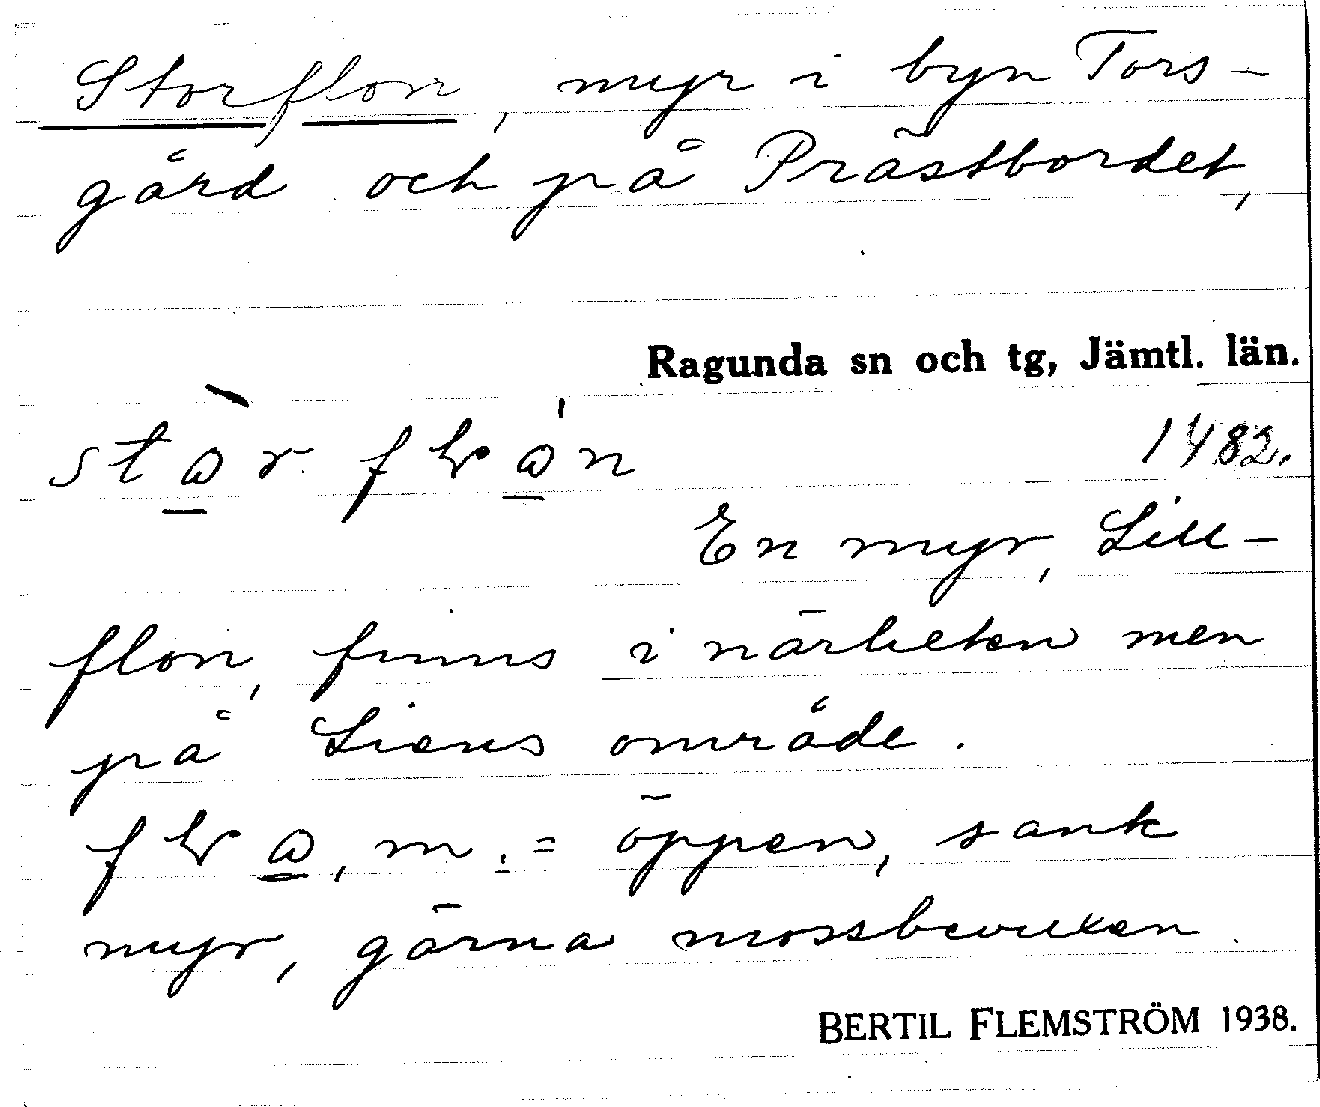 Storflon, myr i byn Tors-
gård och på Prästbordet,
Ragunda sn och tg, Jämtl. län.
1482.
En myr, Lill-
flon, finns i närheten men
på Liens område.
m. = öppen, sank
myr, gärna mossbevuxen.
BERTIL FLEMSTRÖM 1938.